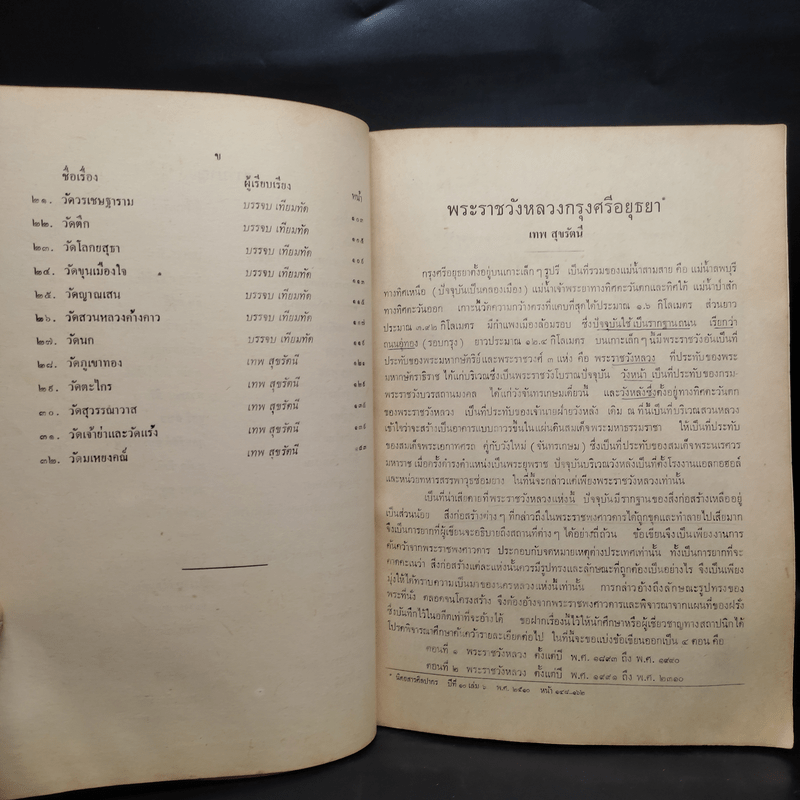 ข
ชื่อเรื่อง ผู้เรียบเรียง หน้า
๒๑. วัดวรเชษฐาราม บรรจบ เทียมทัด ๑๐๓
๒๒. วัดตึก บรรจบ เทียมทัด ๑๐๕
๒๓. วัดโลกยสุธา บรรจบ เทียมทัด ๑๐๙
๒๔. วัดขุนเมืองใจ บรรจบ เทียมทัด
๒๕. วัดญาณเสน บรรจบ เทียมทัด ๑๑๕
๒๖. วัดสวนหลวงค้างคาว บรรจบ เทียมทัด ๑๑๗
๒๗. วัดนก บรรจบ เทียมทัด ๑๑๙
๒๘. วัดภูเขาทอง เทพ สุขรัตนี ๑๒๑
๒๙. วัดตะไกร เทพ สุขรัตนี ๑๒๕
๓๐. วัดสุวรรณาวาส เทพ สุขรัตนี
๓๑. วัดเจ้าย่าและวัดแร้ง เทพ สุขรัตนี
๓๒. วัดมเหยงคณ์ เทพ สุขรัตนี ๑๕๓
พระราชวังหลวงกรุงศรีอยุธยา*
เทพ สุขรัตนี
กรุงศรีอยุธยาตั้งอยู่บนเกาะเล็ก ๆ รูปรี เป็นที่รวมของแม่น้ำสามสาย คือ แม่น้ำลพบุรี
ทางทิศเหนือ (ปัจจุบันเป็นคลองเมือง) แม่น้ำเจ้าพระยาทางทิศตะวันตกและทิศใต้ แม่น้ำป่าสัก
ทางทิศตะวันออก เกาะนี้วัดความกว้างตรงที่แคบที่สุดได้ประมาณ ๑.๖ กิโลเมตร ส่วนยาว
ประมาณ ๓.๙๒ กิโลเมตร มีกำแพงเมืองล้อมรอบ ซึ่งปัจจุบันใช้เป็นรากฐานถนน เรียกว่า
ถนนอู่ทอง (รอบกรุง) ยาวประมาณ ๑๒.๔ กิโลเมตร บนเกาะเล็กๆ นี้มีพระราชวังอันเป็นที่
ประทับของพระมหากษัตริย์และพระราชวงศ์ ๓ แห่ง คือ พระราชวังหลวง ที่ประทับของพระ
มหากษัตราธิราช ได้แก่บริเวณซึ่งเป็นพระราชวังโบราณปัจจุบัน วังหน้า เป็นที่ประทับของกรม-
พระราชบวรสถานมงคล ได้แก่วังจันทรเกษมเดี๋ยวนี้ และวังหลังซึ่งตั้งอยู่ทางทิศตะวันตก
ของพระราชวังหลวง เป็นที่ประทับของเจ้านายฝ่ายวังหลัง เดิม ณ ที่นี้เป็นที่บริเวณสวนหลวง
เข้าใจว่าจะสร้างเป็นอาคารแบบถาวรขึ้นในแผ่นดินสมเด็จพระมหาธรรมราชา ให้เป็นที่ประทับ
ของสมเด็จพระเอกาทศรถ คู่กับวังใหม่ (จันทรเกษม) ซึ่งเป็นที่ประทับของสมเด็จพระนเรศวร
มหาราช เมื่อครั้งดำรงตำแหน่งเป็นพระยุพราช ปัจจุบันบริเวณวังหลังเป็นที่ตั้งโรงงานแอลกอฮอล์
และหน่วยทหารสรรพาวุธซ่อมยาง ในที่นี้จะกล่าวแต่เพียงพระราชวังหลวงเท่านั้น
เป็นที่น่าเสียดายที่พระราชวังหลวงแห่งนี้ ปัจจุบันมีรากฐานของสิ่งก่อสร้างเหลืออยู่
เป็นส่วนน้อย สิ่งก่อสร้างต่าง ๆ ที่กล่าวถึงในพระราชพงศาวดารได้ถูกขุดและทำลายไปเสียมาก
จึงเป็นการยากที่ผู้เขียนจะอธิบายถึงสถานที่ต่าง ๆ ได้อย่างถี่ถ้วน ข้อเขียนจึงเป็นเพียงงานการ
ค้นคว้าจากพระราชพงศาวดาร ประกอบกับจดหมายเหตุต่างประเทศเท่านั้น ทั้งเป็นการยากที่จะ
คาดคะเนว่า สิ่งก่อสร้างแต่ละแห่งนั้นควรมีรูปทรงและลักษณะที่ถูกต้องเป็นอย่างไร จึงเป็นเพียง
มุ่งให้ได้ทราบความเป็นมาของนครหลวงแห่งนี้เท่านั้น การกล่าวอ้างถึงลักษณะรูปทรงของ
พระที่นั่ง ตลอดจนโครงสร้าง จึงต้องอ้างจากพระราชพงศาวดารและพิจารณาจากแผนที่ของฝรั่ง
ซึ่งบันทึกไว้ในอดีตเท่าที่จะอ้างได้ ขอฝากเรื่องนี้ไว้ให้นักศึกษาหรือผู้เชี่ยวชาญทางสถาปนิกได้
โปรดพิจารณาศึกษาค้นคว้ารายละเอียดต่อไป ในที่นี้จะขอแบ่งข้อเขียนออกเป็น ๔ ตอน คือ
ตอนที่ ๑ พระราชวังหลวง ตั้งแต่ปี พ.ศ. ๑๘๙๓ ถึง พ.ศ. ๑๙๙๐
ตอนที่ ๒ พระราชวังหลวง ตั้งแต่ปี พ.ศ. ๑๙๙๑ ถึง พ.ศ. ๒๓๑๐
* นิตยสารศิลปากร ปีที่ ๑๐ เล่ม ๖ พ.ศ. ๒๕๑๐ หน้า ๑๔๘-๑๖๒